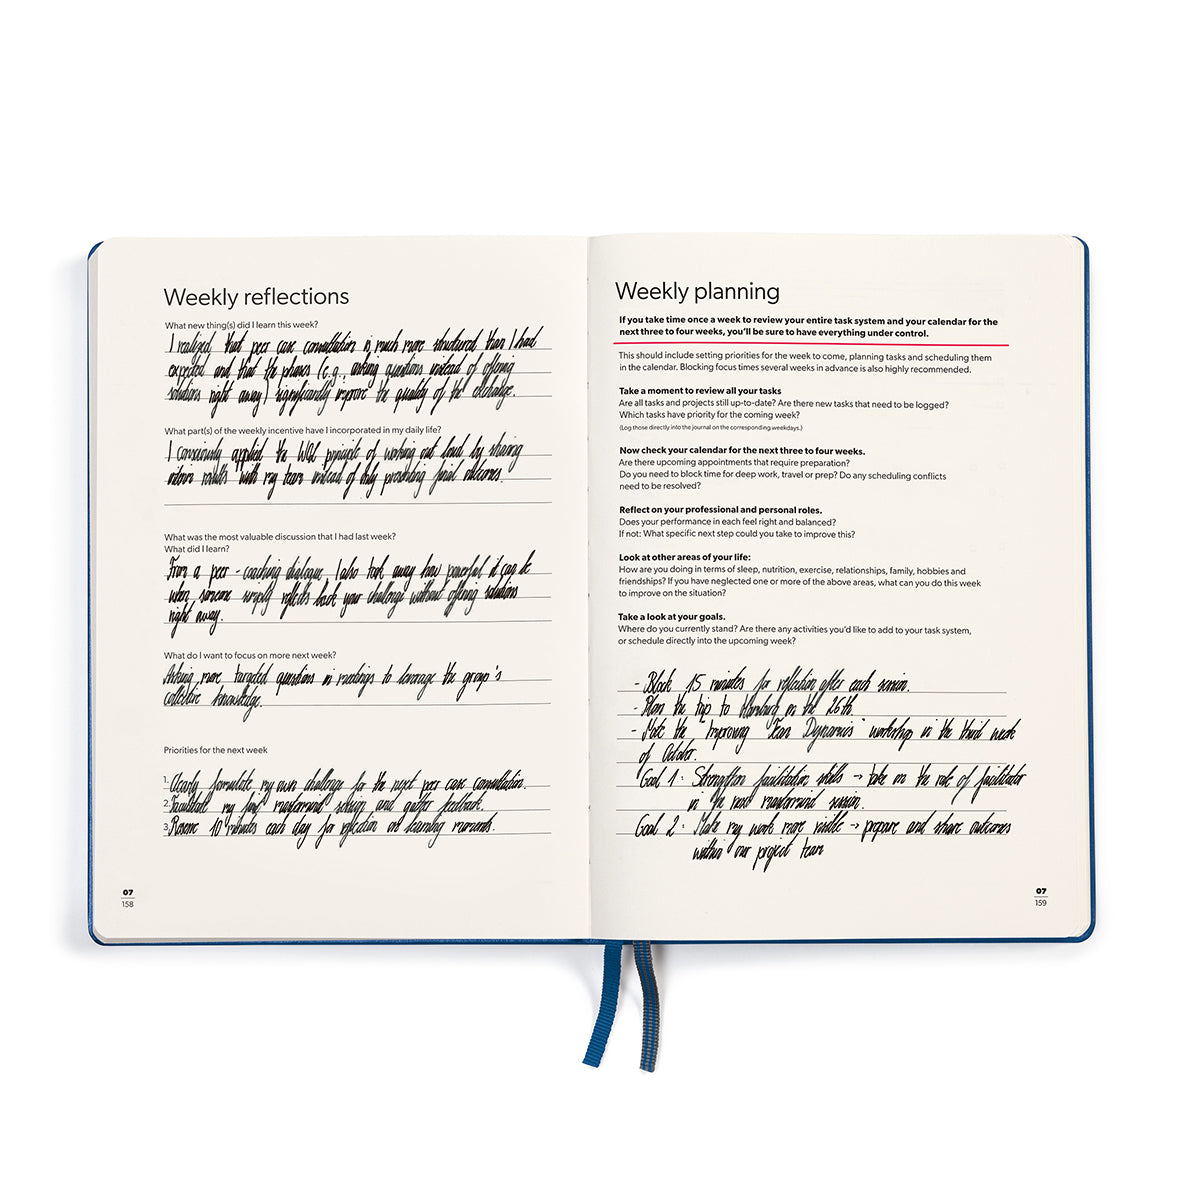 Weekly reflections
What new thing(s) did I learn this week?
I realized that peer case consultation is much more structured than I had
expected and that the phases (e.g., asking questions instead of offering
solutions right away) significantly improve the quality of the exchange.
What part(s) of the weekly incentive have I incorporated in my daily life?
I consciously applied the WOL principle of working out loud by sharing
interim results with my team instead of only presenting final outcomes.
What was the most valuable discussion that I had last week?
What did I learn?
From a peer-coaching dialogue, I also took away how powerful it can be
when someone simply reflects back your challenge without offering solutions
right away.
What do I want to focus on more next week?
Asking more targeted questions in meetings to leverage the group's
collective knowledge.
Priorities for the next week
1. Clearly formulate my own challenge for the next peer case consultation.
2. Facilitate my first mastermind session and gather feedback.
3. Reserve 10 minutes each day for reflection on learning moments.
07
158
Weekly planning
If you take time once a week to review your entire task system and your calendar for the
next three to four weeks, you'll be sure to have everything under control.
This should include setting priorities for the week to come, planning tasks and scheduling them
in the calendar. Blocking focus times several weeks in advance is also highly recommended.
Take a moment to review all your tasks
Are all tasks and projects still up-to-date? Are there new tasks that need to be logged?
Which tasks have priority for the coming week?
(Log those directly into the journal on the corresponding weekdays.)
Now check your calendar for the next three to four weeks.
Are there upcoming appointments that require preparation?
Do you need to block time for deep work, travel or prep? Do any scheduling conflicts
need to be resolved?
Reflect on your professional and personal roles.
Does your performance in each feel right and balanced?
If not: What specific next step could you take to improve this?
Look at other areas of your life:
How are you doing in terms of sleep, nutrition, exercise, relationships, family, hobbies and
friendships? If you have neglected one or more of the above areas, what can you do this week
to improve on the situation?
Take a look at your goals.
Where do you currently stand? Are there any activities you'd like to add to your task system,
or schedule directly into the upcoming week?
- Block 15 minutes for reflection after each session.
- Plan the trip to Hamburg on the 26th.
- Note the "Improving Team Dynamics" workshop in the third week
of October.
Goal 1: Strengthen facilitation skills → take on the role of facilitator
in the next mastermind session.
Goal 2: Make my work more visible → prepare and share outcomes
within our project team
07
159